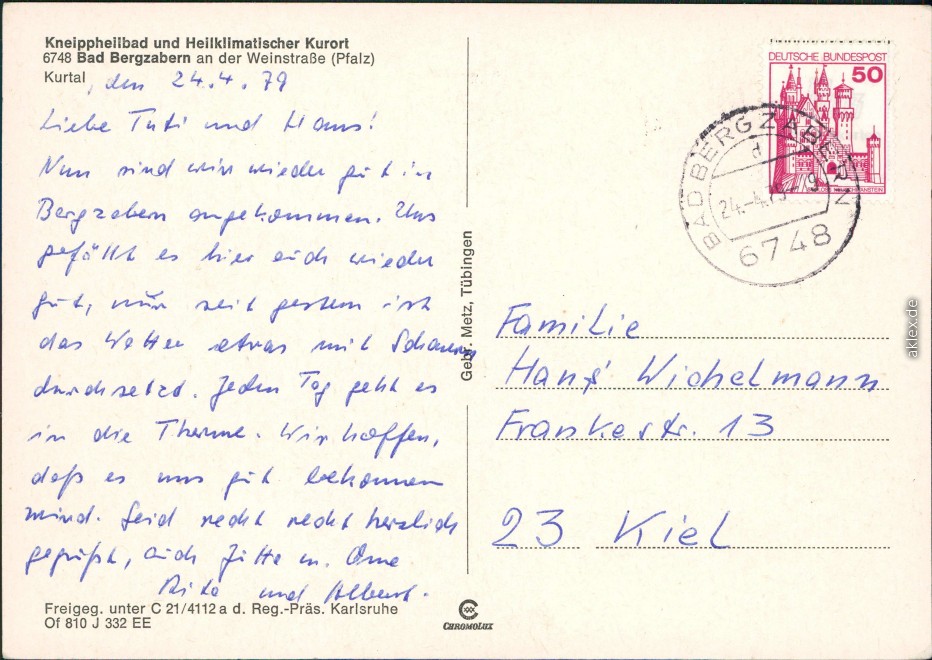 Kneippheilbad und Heilklimatischer Kurort
6748 Bad Bergzabern an der Weinstraße (Pfalz)
Kurtal, den 24.4.79
Liebe Tuti und Hans!
Nun sind wir wieder gut in
Bergzabern angekommen. Uns
gefällt es hier auch wieder
gut, nur seit gestern ist
das Wetter etwas mit Schauern
durchsetzt. Jeden Tag geht es
in die Therme. Wir hoffen,
daß es uns gut bekommen
wird. Seid recht recht herzlich
gegrüßt, auch Jutta u. Oma
Rita und Albert.
Freigeg. unter C 21/4112 a d. Reg.-Präs. Karlsruhe
Of 810 J 332 EE
Gebr. Metz, Tübingen
CHROMOLUX
DEUTSCHE BUNDESPOST
50
BAD BERGZABERN
d
24.-4.79-9
6748
Familie
Hans Wichelmann
Frankestr. 13
23 Kiel
aklex.de